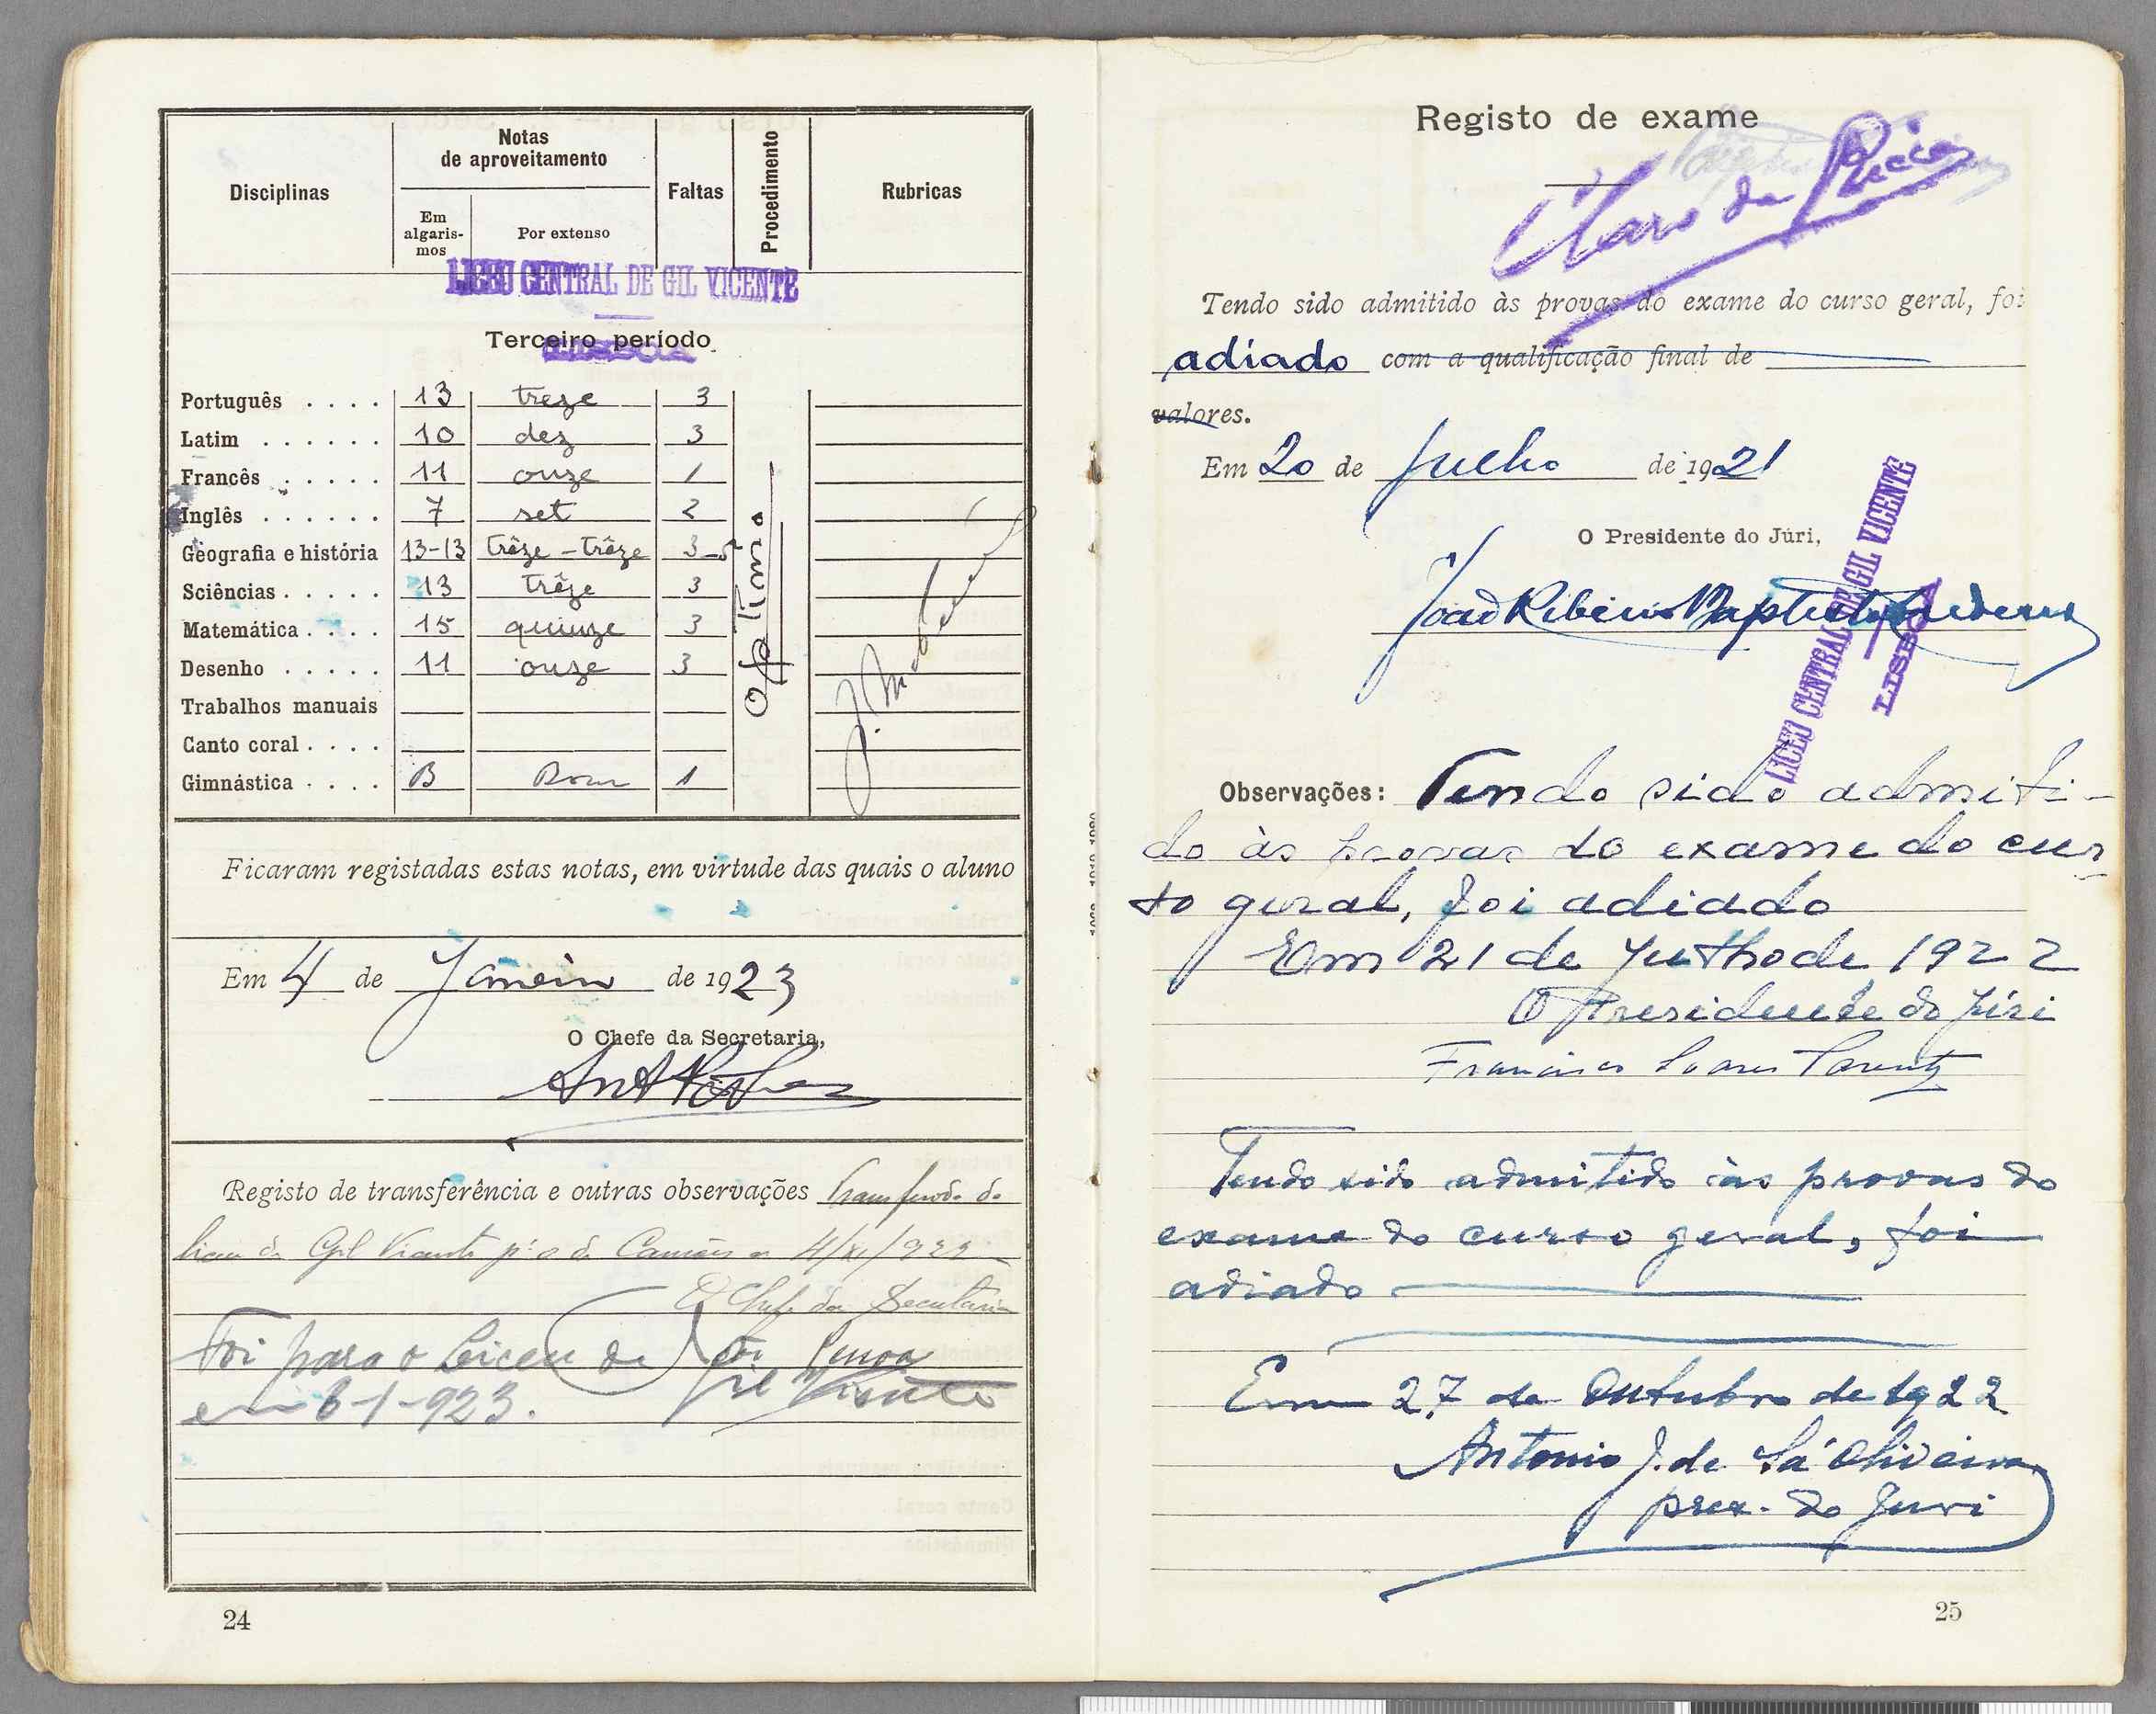 Disciplinas
Notas
de aproveitamento
Em
algaris-
mos
Por extenso
Faltas
Procedimento
Rubricas
LICEU CENTRAL DE GIL VICENTE
Terceiro período
LISBOA
Português . . . . 13 treze 3
Latim . . . . . . 10 dez 3
Francês . . . . . 11 onze 1
Inglês . . . . . . 7 set 2
Geografia e história 13-13 Trêze - Trêze 3-5
Sciências . . . . . 13 Trêze 3
Matemática . . . . 15 quinze 3
Desenho . . . . . 11 onze 3
Trabalhos manuais
Canto coral . . . .
Gimnástica . . . . B Bom 1
Optimo
Ficaram registadas estas notas, em virtude das quais o aluno
Em 4 de Janeiro de 1923
O Chefe da Secretaria,
Registo de transferência e outras observações Transferido do
liceu de Gil Vicente pª o de Camões em 4/XI/922
O Chefe da Secretaria
Foi para o Liceu de
Gil Vicente
em 6-1-923.
24
Registo de exame
Tendo sido admitido às provas do exame do curso geral, foi
adiado com a qualificação final de
valores.
Em 20 de Julho de 1921
O Presidente do Júri,
João Ribeiro Baptista
LICEU CENTRAL DE GIL VICENTE
LISBOA
Observações: Tendo sido admiti-
do às provas do exame do cur-
so geral, foi adiado
Em 21 de Julho de 1922
O Presidente do Júri
Francisco Soares
Tendo sido admitido às provas do
exame do curso geral, foi
adiado
Em 27 de Outubro de 1922
Antonio J. de Sá Oliveira
pres. do Juri
25